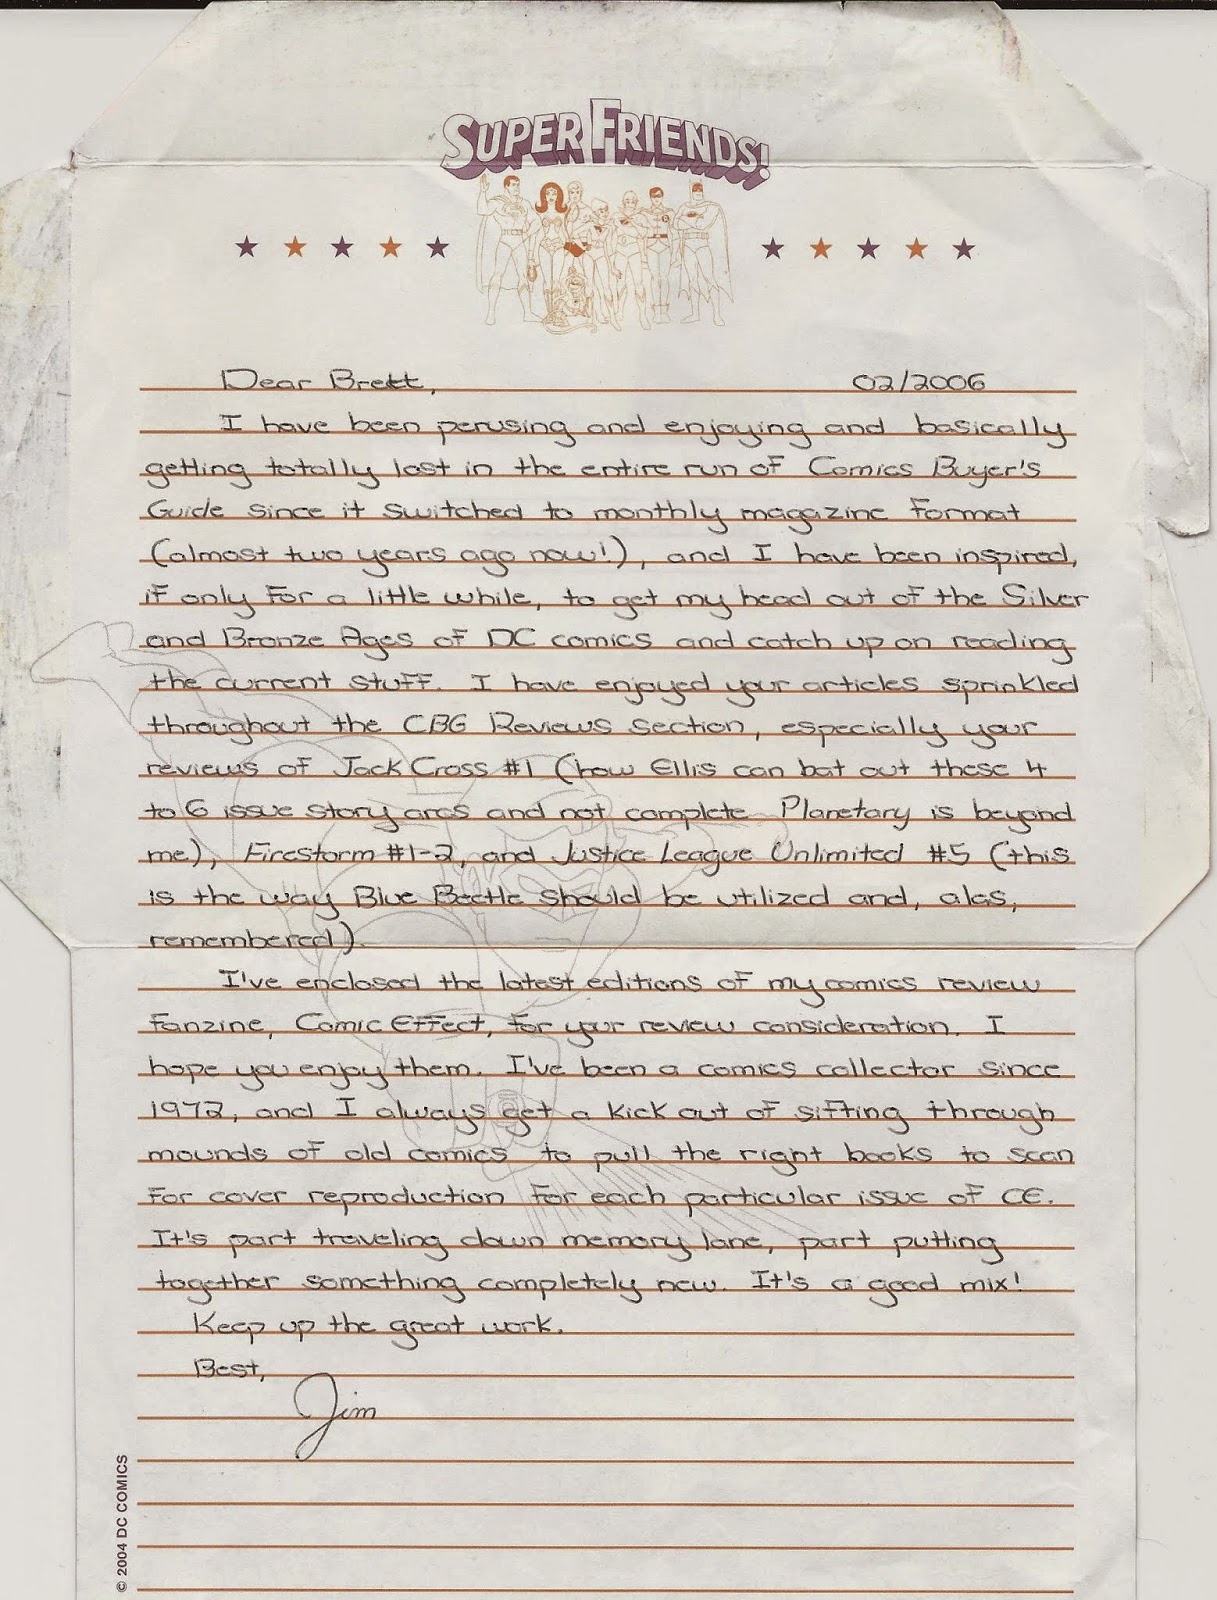 SUPER FRIENDS!
Dear Brett, 02/2006
I have been perusing and enjoying and basically
getting totally lost in the entire run of Comics Buyer's
Guide since it switched to monthly magazine format
(almost two years ago now!), and I have been inspired,
if only for a little while, to get my head out of the Silver
and Bronze Ages of DC comics and catch up on reading
the current stuff. I have enjoyed your articles sprinkled
throughout the CBG Reviews section, especially your
reviews of Jack Cross #1 (how Ellis can bat out these 4
to 6 issue story arcs and not complete Planetary is beyond
me), Firestorm #1-2, and Justice League Unlimited #5 (this
is the way Blue Beetle should be utilized and, alas,
remembered).
I've enclosed the latest editions of my comics review
fanzine, Comic Effect, for your review consideration. I
hope you enjoy them. I've been a comics collector since
1972, and I always get a kick out of sifting through
mounds of old comics to pull the right books to scan
for cover reproduction for each particular issue of CE.
It's part traveling down memory lane, part putting
together something completely new. It's a good mix!
Keep up the great work.
Best,
Jim
© 2004 DC COMICS